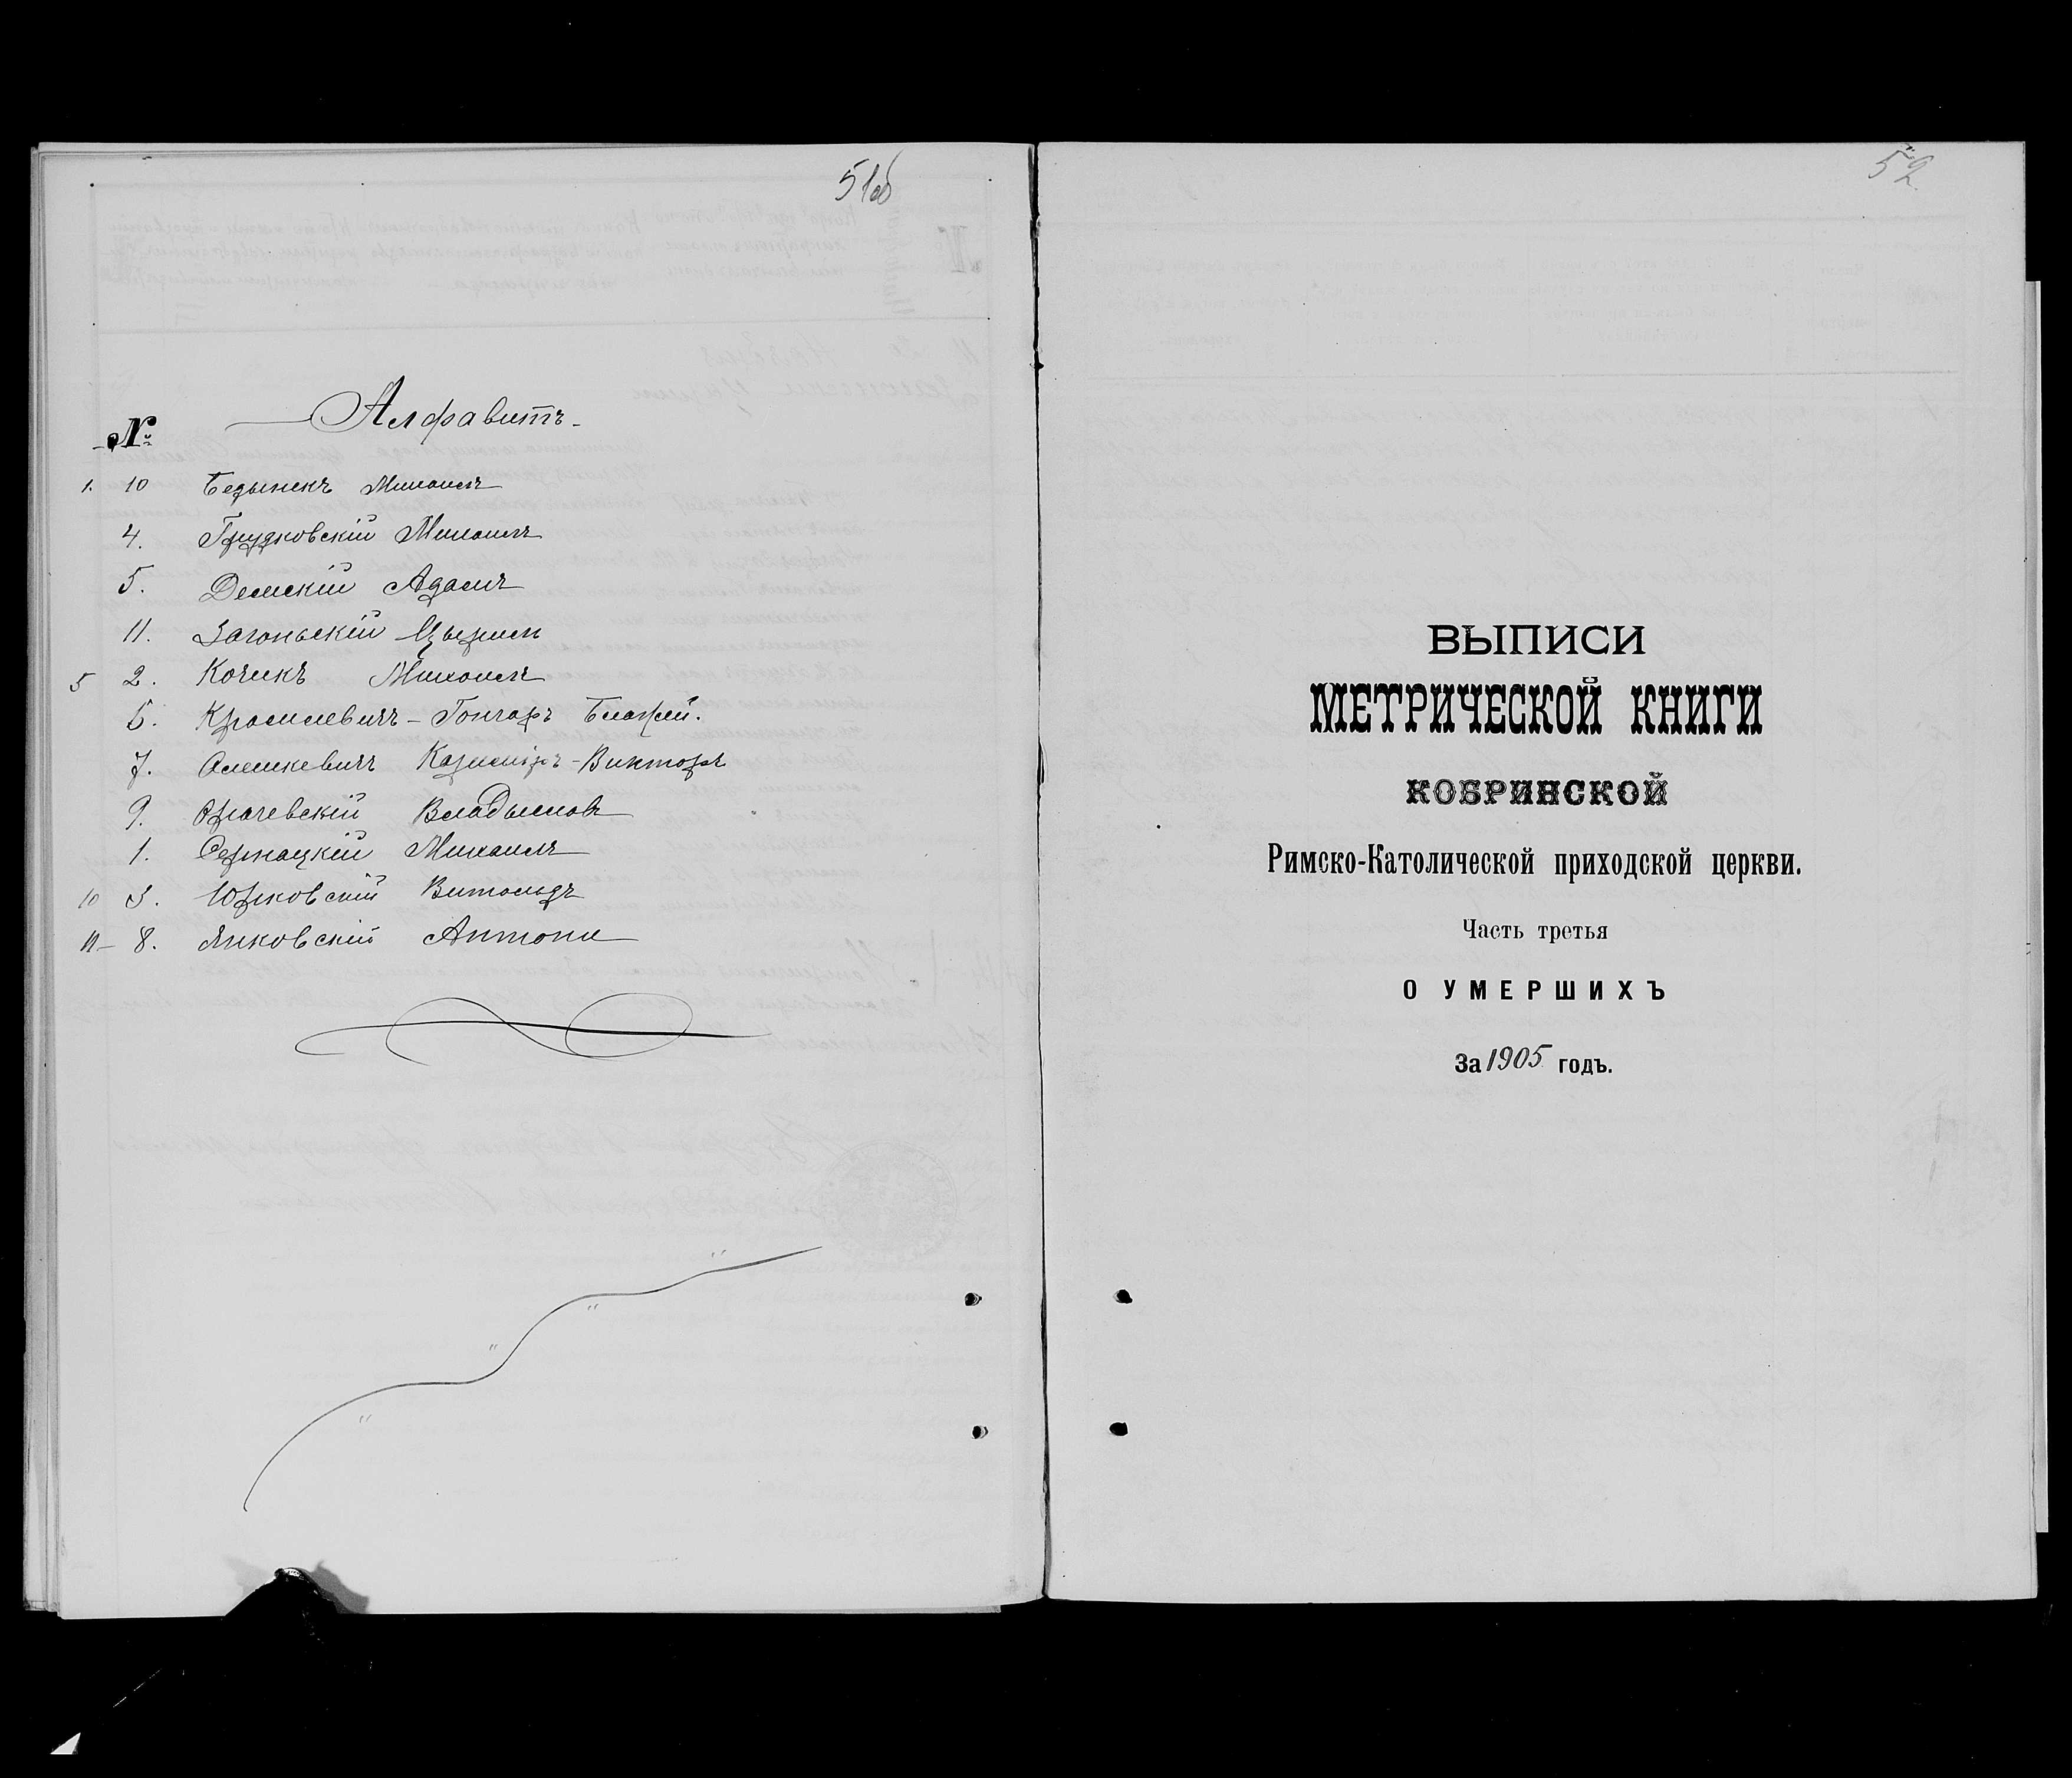 51об
Алфавитъ
№
1. 10 Бедынекъ Михаилъ
4. Грудковскій Михаилъ
5. Демскій Адамъ
11. Загоньскій
5 2. Кочикъ Михаилъ
6. Красилевичъ-Гончаръ Блажей.
7. Олешкевичъ Казиміръ-Викторъ
9. Орачевскій Владыславъ
1. Сернацкій Михаилъ
10 3. Юрковскій Витольдъ
11 8. Янковскій Антони
52
ВЫПИСИ
МЕТРИЧЕСКОЙ КНИГИ
КОБРИНСКОЙ
Римско-Католической приходской церкви.
Часть третья
О УМЕРШИХЪ
За 1905 годъ.